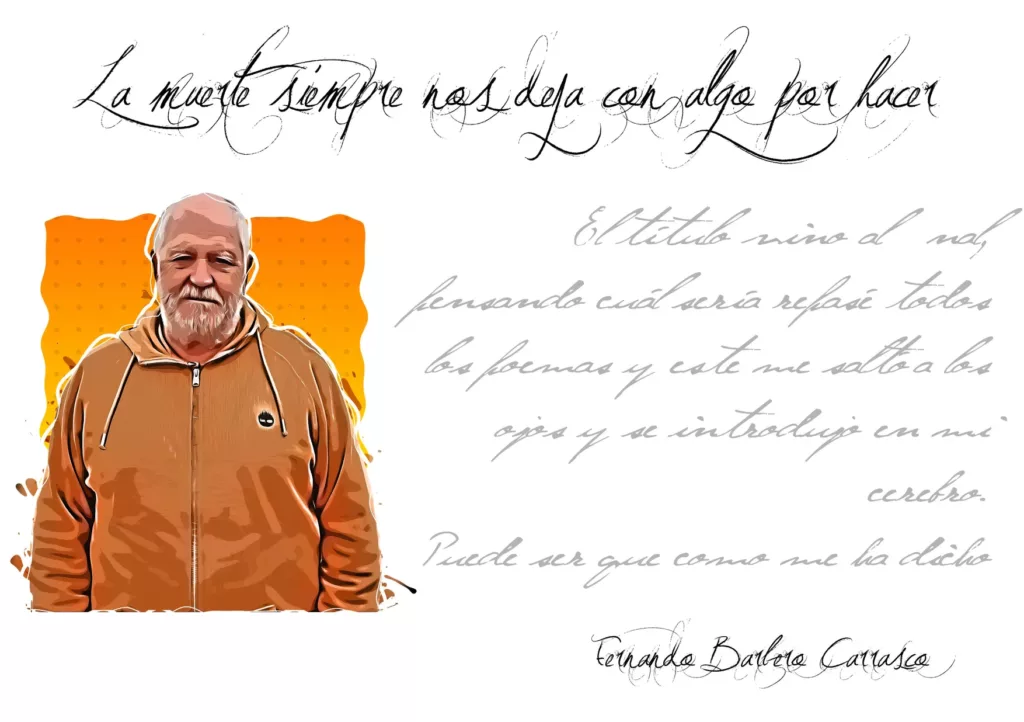 La muerte siempre nos deja con algo por hacer
El título vino al nal,
pensando cuál sería repasé todos
los poemas y este me salto a los
ojos y se introdujo en mi
cerebro.
Puede ser que como me ha dicho
Fernando Barbero Carrasco